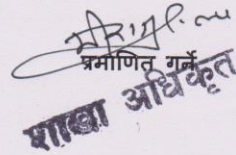 प्रमाणित गर्ने
शाखा अधिकृत